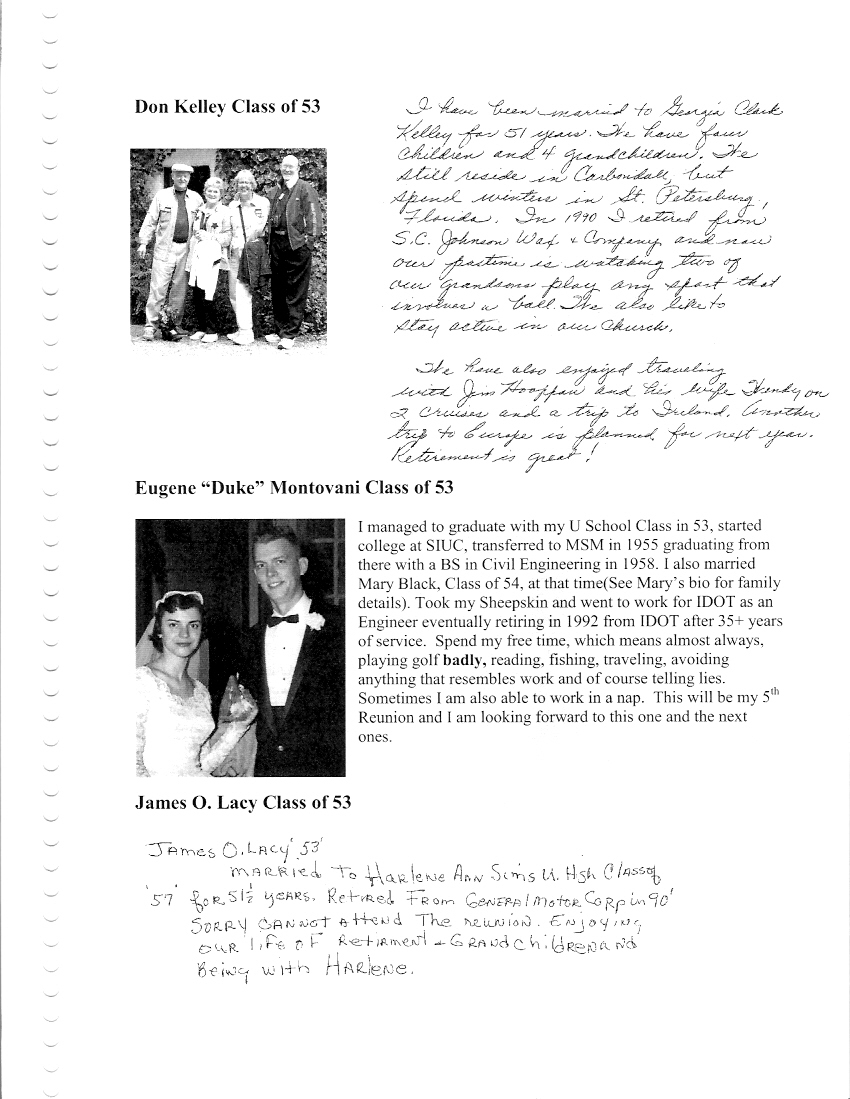 Don Kelley Class of 53
I have been married to Georgia Clark
Kelley for 51 years. We have four
children and 4 grandchildren. We
still reside in Carbondale, but
spend winters in St. Petersburg,
Florida. In 1990 I retired from
S.C. Johnson Wax & Company and now
our pastime is watching two of
our grandsons play any sport that
involves a ball. We also like to
stay active in our Church.
We have also enjoyed traveling
with Jim and his wife on
2 Cruises and a trip to Ireland. Another
trip to Europe is planned for next year.
Retirement is great!
Eugene “Duke” Montovani Class of 53
I managed to graduate with my U School Class in 53, started
college at SIUC, transferred to MSM in 1955 graduating from
there with a BS in Civil Engineering in 1958. I also married
Mary Black, Class of 54, at that time(See Mary’s bio for family
details). Took my Sheepskin and went to work for IDOT as an
Engineer eventually retiring in 1992 from IDOT after 35+ years
of service.  Spend my free time, which means almost always,
playing golf badly, reading, fishing, traveling, avoiding
anything that resembles work and of course telling lies.
Sometimes I am also able to work in a nap.  This will be my 5th
Reunion and I am looking forward to this one and the next
ones.
James O. Lacy Class of 53
James O. Lacy '53'
Married to Harlene Ann Sims U. Hgh Class of
'57' for 51½ years. Retired From General Motor Corp in 90'
Sorry cannot attend The reunion. Enjoying
our life of Retirment & Grandchildren and
Being with Harlene.